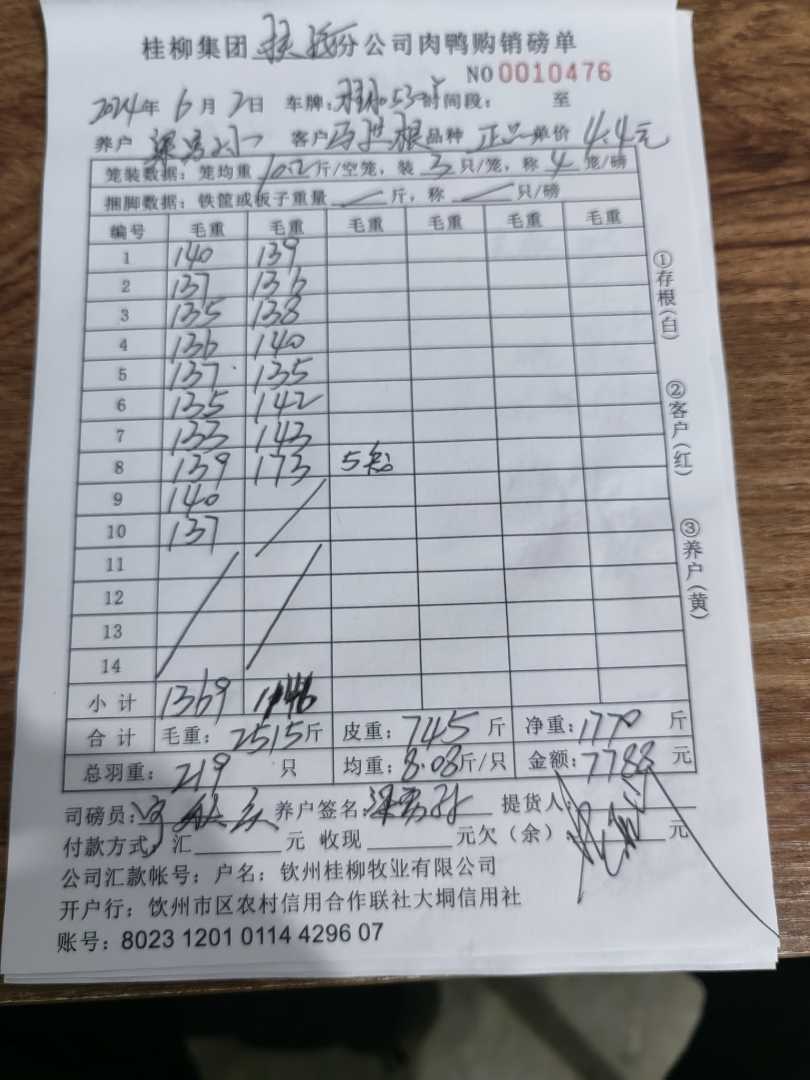 桂柳集团 分公司肉鸭购销磅单
NO 0010476
2024年 6月 2日 车牌: 时间段: 至
养户 客户 马 根 品种 正品 单价 4.4元
笼装数据: 笼均重 10.2 斤/空笼, 装 3 只/笼, 称 4 笼/磅
捆脚数据: 铁筐或板子重量 斤, 称 只/磅
编号 毛重 毛重 毛重 毛重 毛重 毛重
1 140 139
2 137 136
3 135 138
4 136 140
5 137 135
6 135 142
7 133 143
8 139 173 5笼
9 140
10 137
11
12
13
14
小计 1369 1146
合计 毛重: 2515斤 皮重: 745 斤 净重: 1770 斤
总羽重: 219 只 均重: 8.08斤/只 金额: 7788 元
司磅员: 养户签名: 提货人:
付款方式: 汇 元 收现 元欠(余) 元
公司汇款帐号: 户名: 钦州桂柳牧业有限公司
开户行: 钦州市区农村信用合作联社大垌信用社
账号: 8023 1201 0114 4296 07
①存根(白)
②客户(红)
③养户(黄)